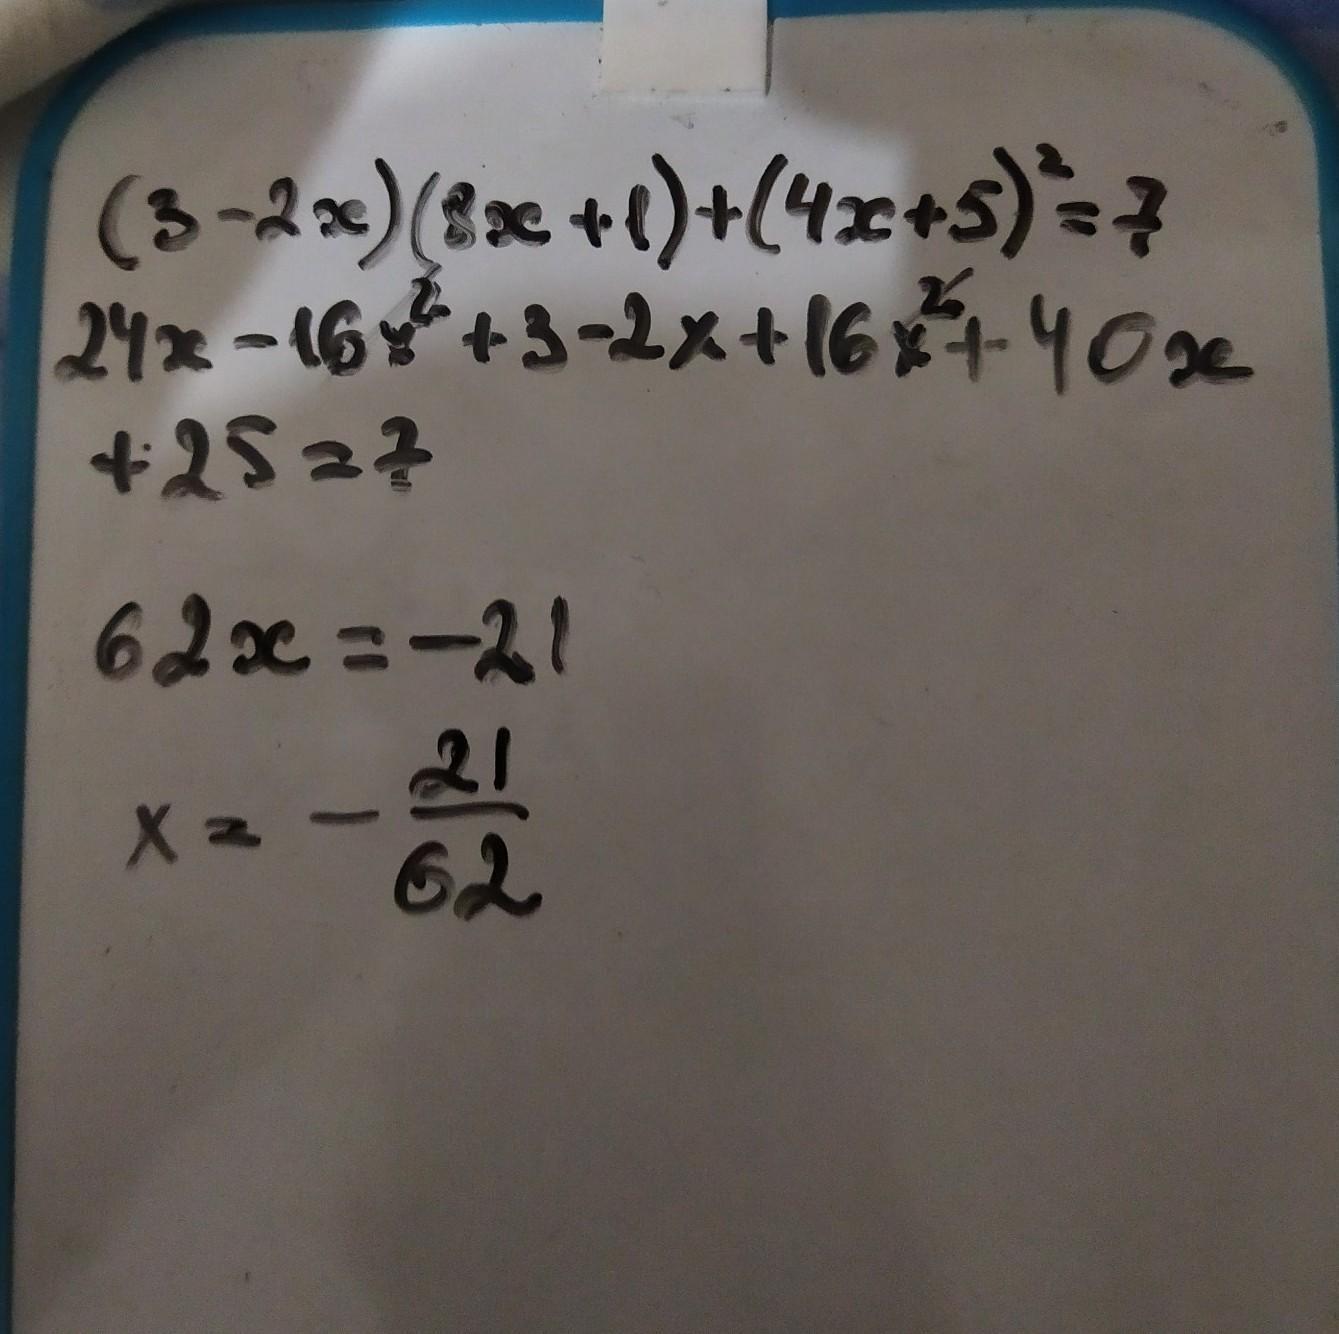 (3-2x)(8x+1)+(4x+5)²=7
24x-16x²+3-2x+16x²+40x
+25=7
62x=-21
x=-21/62